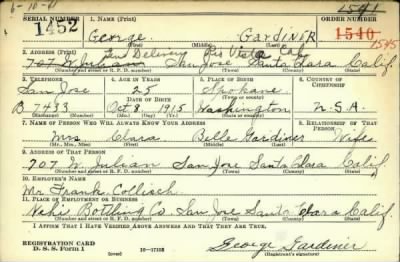 6-10-41
1541
SERIAL NUMBER 1. NAME (Print) ORDER NUMBER
1452 George Gardiner 1540
1545
(First) (Middle) (Last)
2. ADDRESS (Print) Gen Delivery Rio Vista Cal
707 W Julian San Jose Santa Clara Calif
(Number and street or R. F. D. number) (Town) (County) (State)
3. TELEPHONE 4. AGE IN YEARS 5. PLACE OF BIRTH 6. COUNTRY OF CITIZENSHIP
San Jose 25 Spokane
DATE OF BIRTH
B 7433 Oct 8 1915 Washington U.S.A.
7. NAME OF PERSON WHO WILL ALWAYS KNOW YOUR ADDRESS 8. RELATIONSHIP OF THAT PERSON
Mrs Clara Belle Gardiner Wife
(Mr., Mrs., Miss) (First) (Middle) (Last)
9. ADDRESS OF THAT PERSON
707 W. Julian San Jose Santa Clara Calif
(Number and street or R. F. D. number) (Town) (County) (State)
10. EMPLOYER'S NAME
Mr Frank Collisch
11. PLACE OF EMPLOYMENT OR BUSINESS
Bottling Co. San Jose Santa Clara Calif.
(Number and street or R. F. D. number) (Town) (County) (State)
I AFFIRM THAT I HAVE VERIFIED ABOVE ANSWERS AND THAT THEY ARE TRUE.
REGISTRATION CARD
D. S. S. Form 1 (over) 16-17105 George Gardiner
(Registrant's signature)